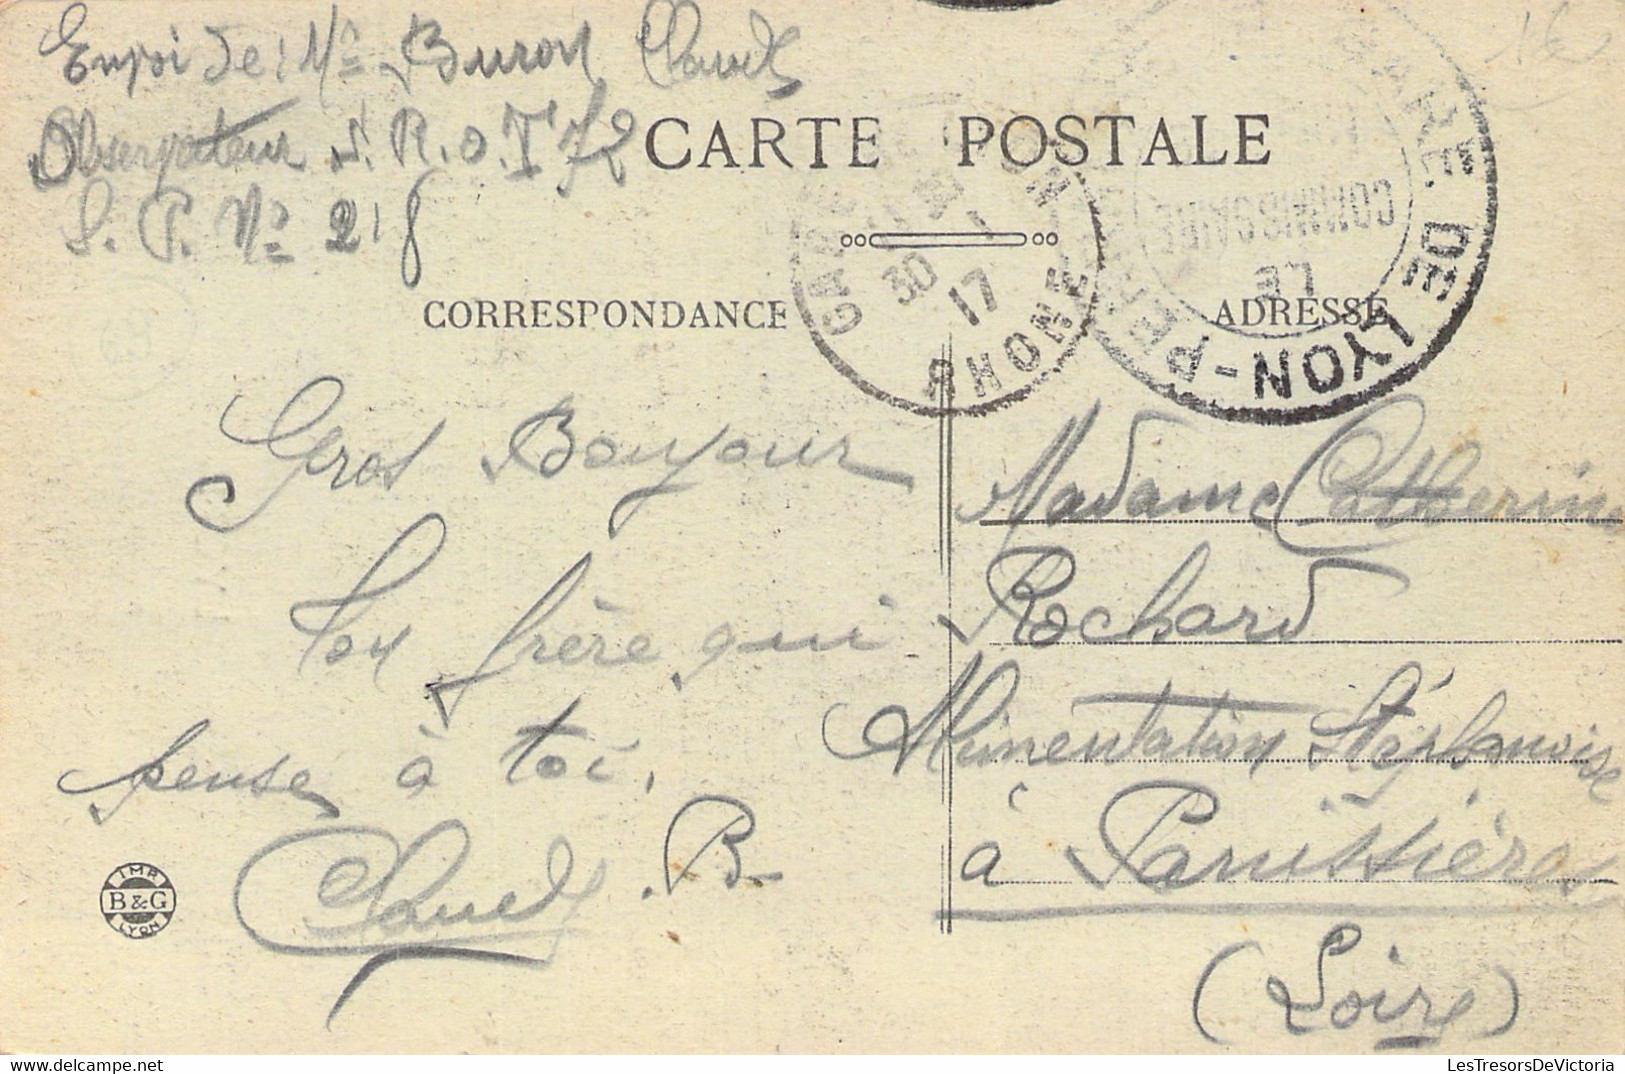 Envoi de : Mr Buron Claude
Observateur S. R. O. T 72
S. P. No 218
1€
CARTE POSTALE
CORRESPONDANCE
ADRESSE
GARE LYON
30 - 1
17
RHONE
GARE DE LYON-PERRACHE
LE
COMMISSAIRE
Gros Bonjour
Ton frère qui
pense à toi.
Claude B.
Madame Catherine
Rochard
Alimentation Stéphanoise
à Panissières
(Loire)
IMP.
B & G
LYON
LesTresorsDeVictoria